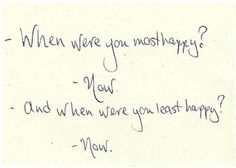 - When were you most happy?
- Now.
- And when were you least happy?
- Now.